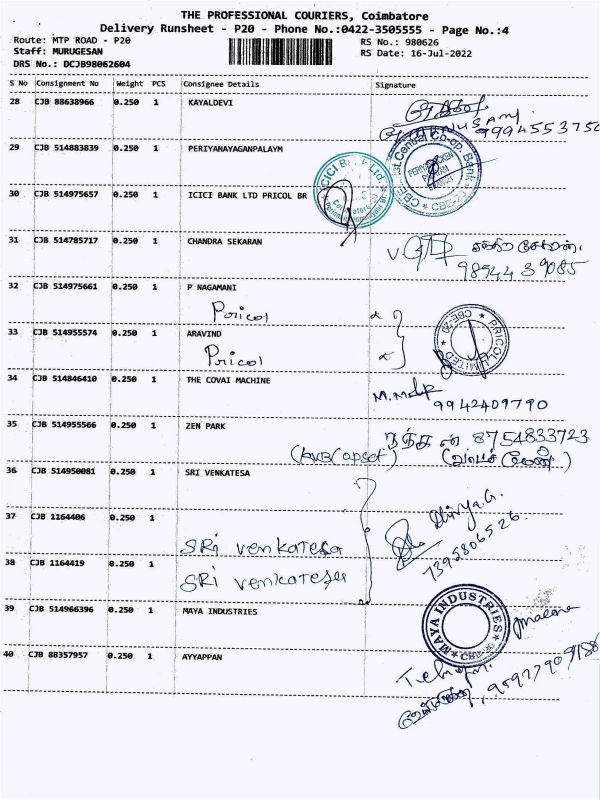 THE PROFESSIONAL COURIERS, Coimbatore
Delivery Runsheet - P20 - Phone No.:0422-3505555 - Page No.:4
Route: MTP ROAD - P20 RS No.: 980626
Staff: MURUGESAN RS Date: 16-Jul-2022
DRS No.: DCJB98062604
S No Consignment No Weight PCS Consignee Details Signature
28 CJB 88638966 0.250 1 KAYALDEVI
9994553752
29 CJB 514883839 0.250 1 PERIYANAYAGANPALAYM
30 CJB 514975657 0.250 1 ICICI BANK LTD PRICOL BR
31 CJB 514785717 0.250 1 CHANDRA SEKARAN
9894439085
32 CJB 514975661 0.250 1 P NAGAMANI
Pricol
33 CJB 514955574 0.250 1 ARAVIND
Pricol
PRICOL LIMITED CBE-20
34 CJB 514846410 0.250 1 THE COVAI MACHINE
9942409790
35 CJB 514955566 0.250 1 ZEN PARK
8754833723
36 CJB 514950081 0.250 1 SRI VENKATESA
37 CJB 1164406 0.250 1
SRi venkatesa
Divya.G.
7395806526
38 CJB 1164419 0.250 1
SRi venkatesa
39 CJB 514966396 0.250 1 MAYA INDUSTRIES
MAYA INDUSTRIES
40 CJB 88357957 0.250 1 AYYAPPAN